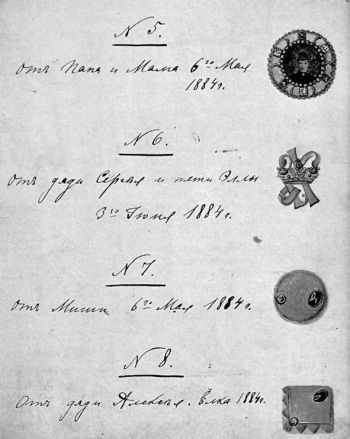 N 5.
отъ Папа и Мама 6го Мая
1884 г.
N 6.
отъ дяди Сергѣя и тети Эллы
3го Іюня 1884 г.
N 7.
отъ Миши 6го Мая 1884 г.
N 8.
Отъ дяди Алексѣя. Ёлка 1884 г.